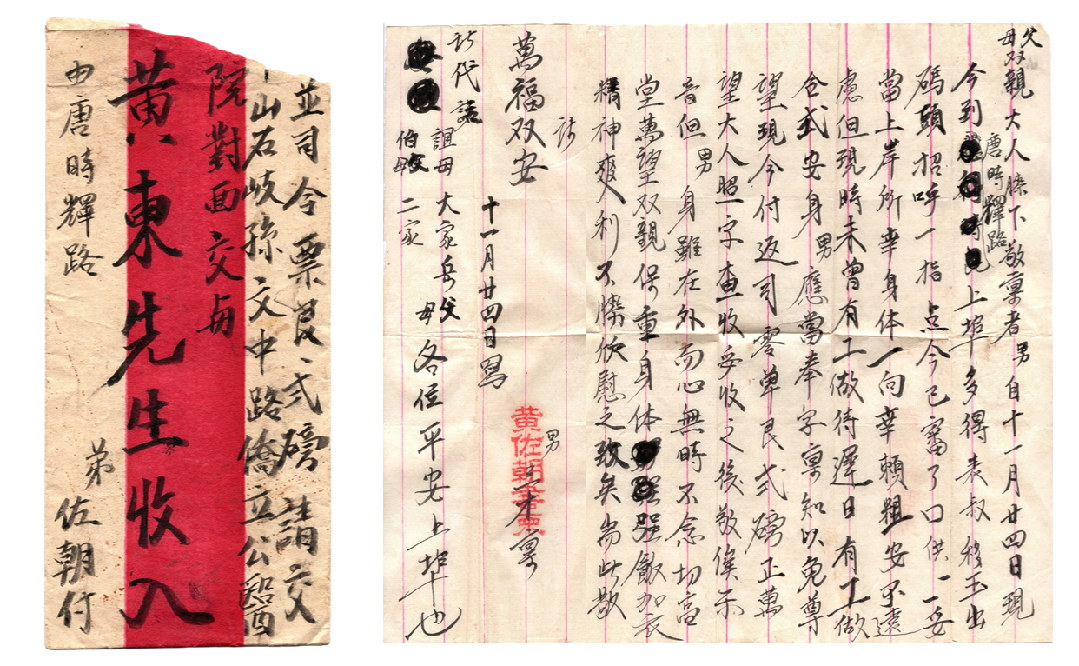 並司令票艮弍磅請交
中山石岐孫文中路僑立公醫
院對面交毋
黃東先生收入
弟佐朝付
由唐時輝路
父母双親大人膝下敬稟者男自十一月廿四日現
今到唐時輝路上埠多得表叔移玉出
碼頭招呼一指点今已寫了口供一一妥
當上岸所幸身体一向幸賴粗安不遠
慮但現時未曾有工做待遲日有工做
仝弍安身男應當奉字稟知以免尊
望現今付返司零单艮弍磅正萬
望大人照字查收妥收之後敬候示
音但男身雖在外而心無時不念切高
堂萬望双親保重身体加衣
精神爽利不勝欣慰之致矣耑此敬
請
萬福双安
男 稟
黃佐朝
十一月廿四日寫
祈代請
祖母大家岳父母各位平安上埠也
伯母二家